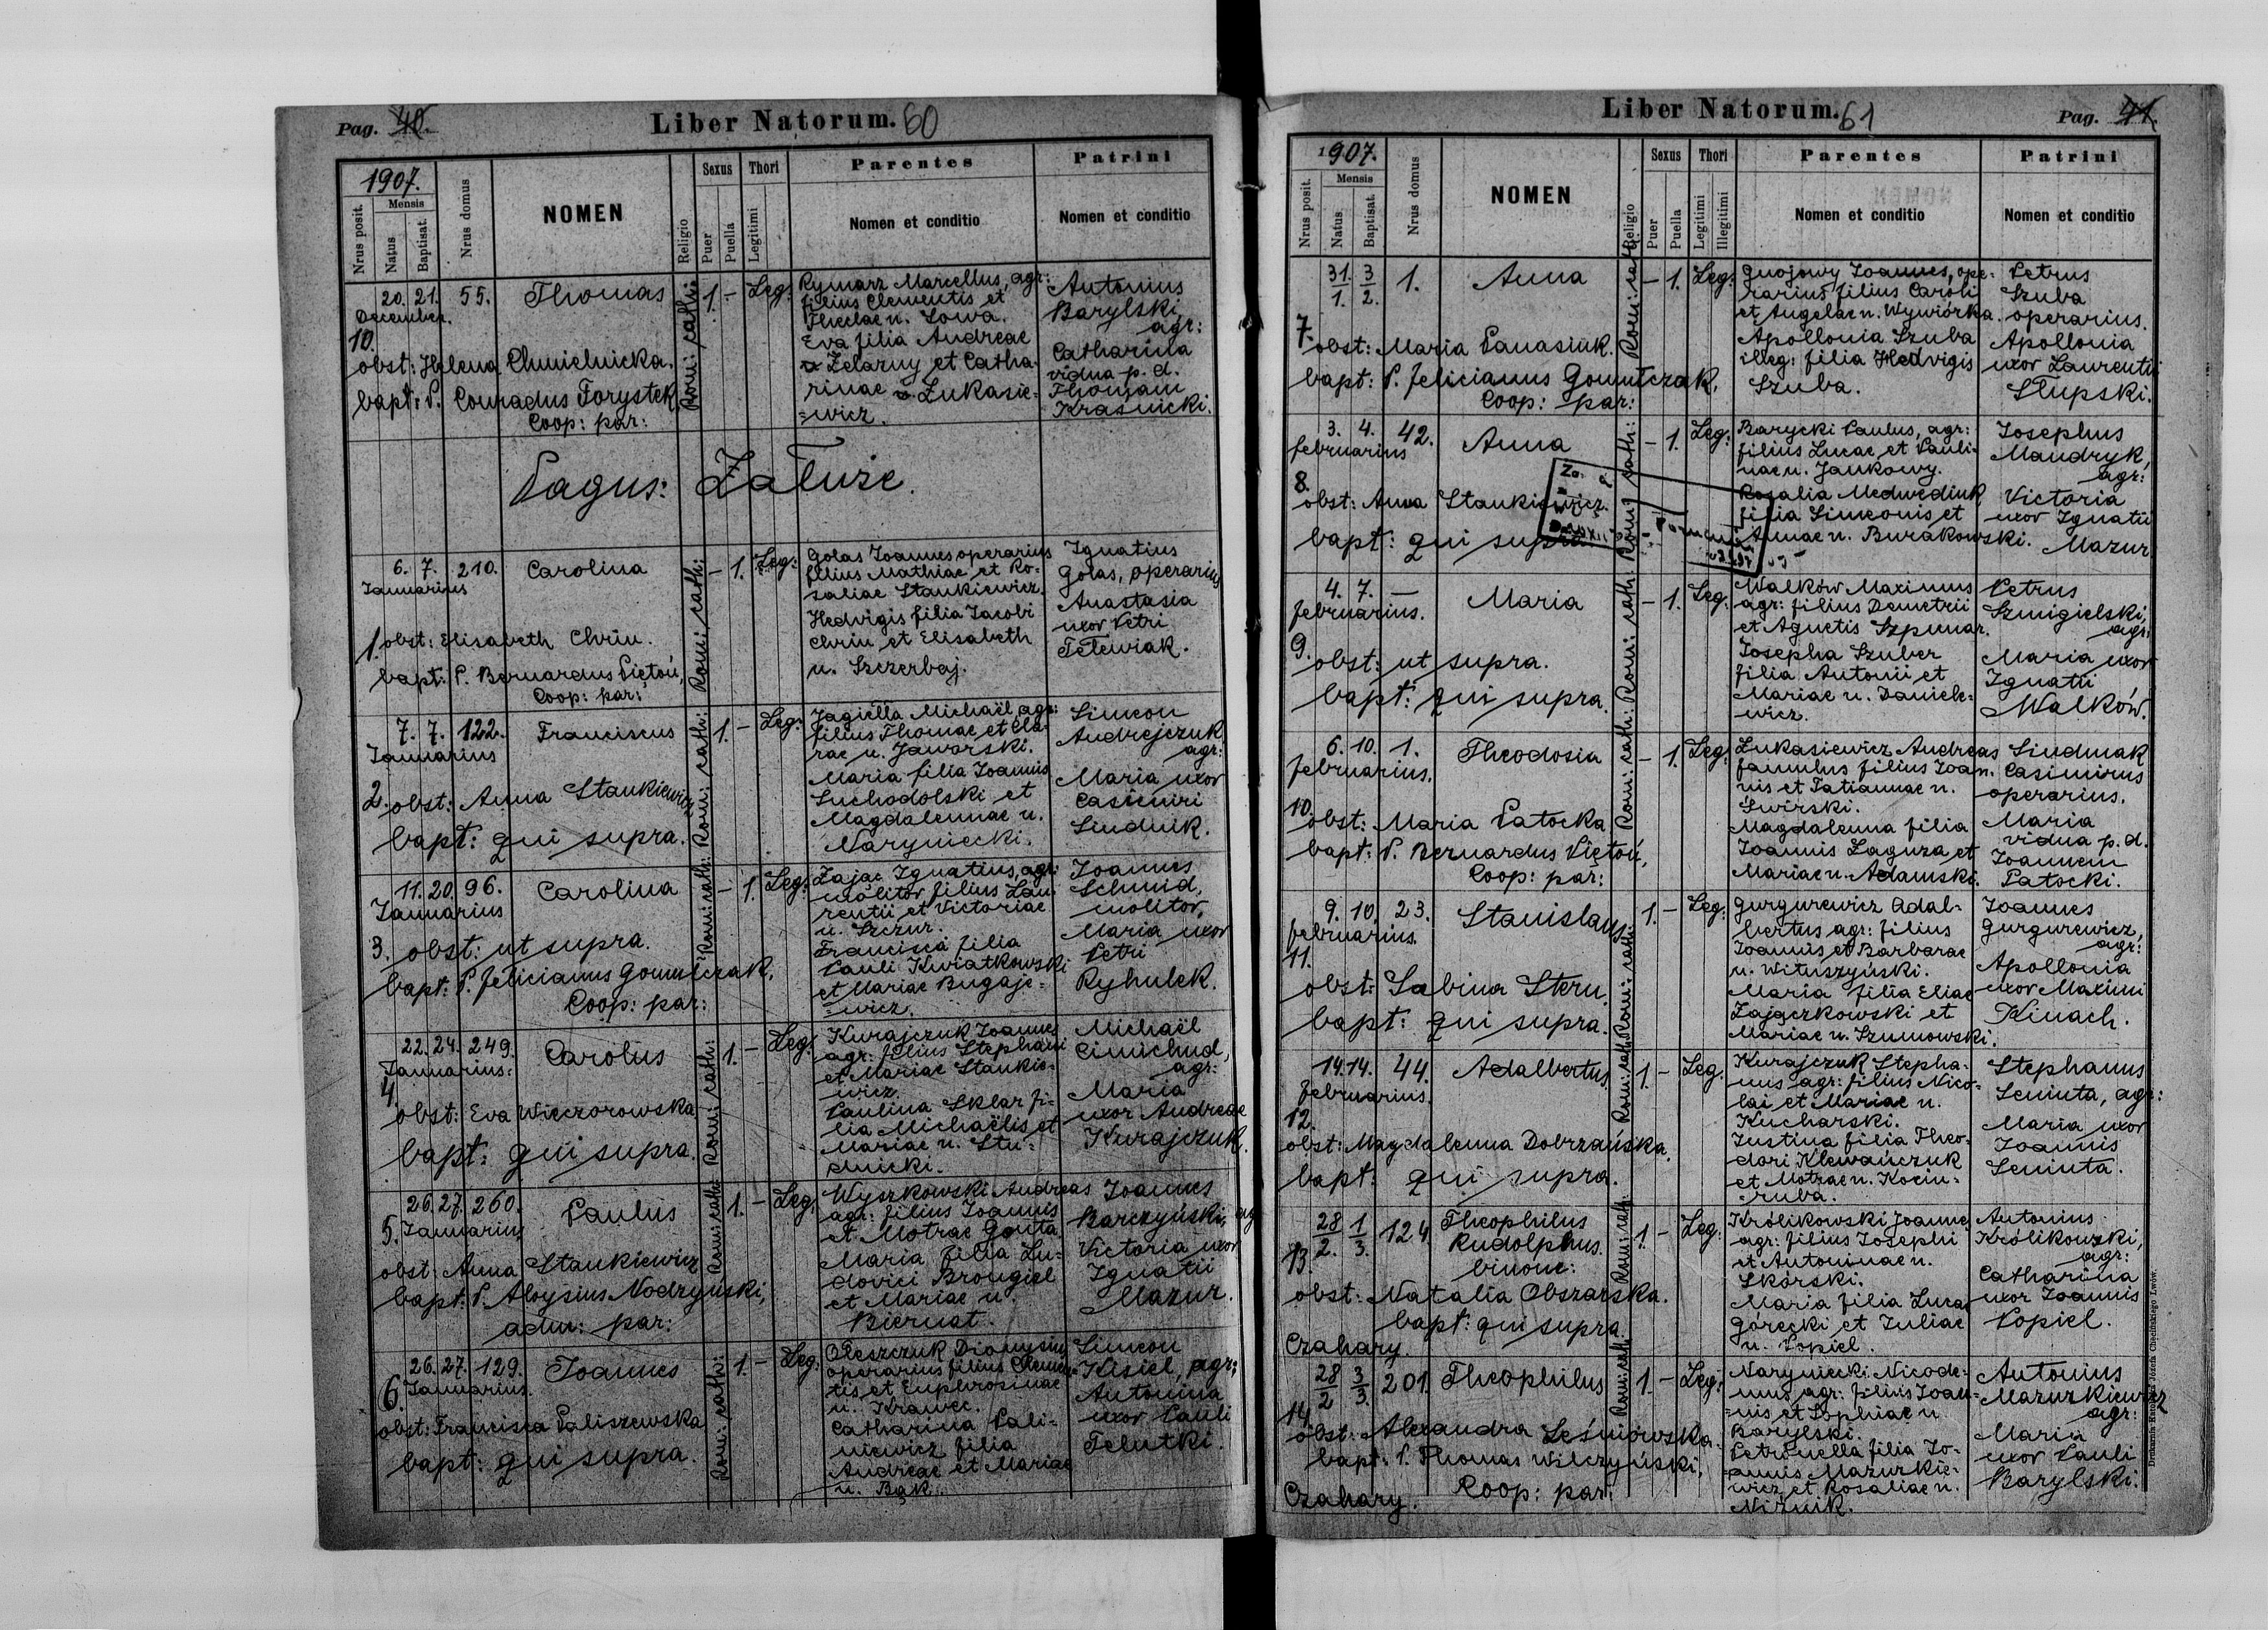 Pag. 40.
Liber Natorum. 60
1907.
Nrus posit.
Mensis
Natus
Baptisat.
Nrus domus
NOMEN
Religio
Sexus
Puer
Puella
Thori
Legitimi
Parentes
Nomen et conditio
Patrini
Nomen et conditio
20. 21. 55. Thomas
December.
10.
obst: Helena Chmielnicka.
bapt: P. Conradus Forystek,
Coop: par:
Rom: cath:
1. - Leg:
Rymarz Marcellus, agr:
filius Clementis et
Theclae n. Sowa.
Eva filia Andreae
Zelazny et Catha-
rinae Łukasie-
=wicz.
Antonius
Barylski,
agr:
Catharina
vidua p. d.
Thomam
Krasnicki.
Pagus: Załuże.
6. 7. 210. Carolina
Januarius
1. obst: Elisabeth Chrin.
bapt: P. Bernardus Pietoń,
Coop: par:
Rom: cath:
- 1. Leg:
Golas Joannes operarius
filius Mathiae et Ro-
saliae Stankiewicz.
Hedvigis filia Jacobi
Chrin et Elisabeth
n. Szczerbaj.
Ignatius
Golas, operarius
Anastasia
uxor Petri
7. 7. 122. Franciscus
Januarius
2. obst: Anna Stankiewicz
bapt: qui supra.
Rom: cath:
1. - Leg:
Jagiełła Michaël agr:
filius Thomae et Cla-
rae n. Jaworski.
Maria filia Joannis
Suchodolski et
Magdalennae n.
Naryniecki.
Simeon
Andrejczuk
agr:
Maria uxor
Casimiri
Sindnik.
11. 20. 96. Carolina
Januarius
3. obst: ut supra.
bapt: P. Felicianus Gomulczak,
Coop: par:
Rom: cath:
- 1. Leg:
Zając Ignatius, agr:
molitor, filius Lau-
rentii et Victoriae
n. Szczur.
Francisca filia
Pauli Kwiatkowski
et Mariae Bugaje-
=wicz.
Joannes
Schmid,
molitor,
Maria uxor
Petri
Ryhulek.
22. 24. 249. Carolus
Januarius:
4.
obst: Eva Wieczorowska
bapt: qui supra.
Rom: cath:
1. - Leg:
Kurajczuk Joannes
agr: filius Stephani
et Mariae Stankie-
wicz.
Paulina Sklar fi-
lia Michaëlis et
Mariae n. Stu-
dnicki.
Michaël
Cimichud,
agr:
Maria
uxor Andreae
Kurajczuk.
26. 27. 260. Paulus
5. Januarius
obst: Anna Stankiewicz
bapt: P. Aloysius Nodzyński,
adm: par:
Rom: cath:
1. - Leg:
Wyszkowski Andreas
agr: filius Joannis
et Motrae Gonta
Maria filia Lu-
dovici Brongiel
et Mariae n.
Biernat.
Joannes
Barczyński, agr
Victoria uxor
Ignatii
Mazur.
26. 27. 129. Joannes
6. Januarius.
obst: Francisca Paliszewska
bapt: qui supra.
Rom: cath:
1. - Leg:
Oleszczuk Dionysius
operarius filius Clemen-
tis et Euphrosinae
n. Krawec.
Catharina Pali-
niewicz filia
Andreae et Mariae
n. Bąk.
Simeon
Kisiel, agr:
Antonina
uxor Pauli
Telutki.
Liber Natorum. 61
Pag. 41.
1907.
Nrus posit.
Mensis
Natus.
Baptisat.
Nrus domus
NOMEN
Religio
Sexus
Puer
Puella
Thori
Legitimi
Illegitimi
Parentes
Nomen et conditio
Patrini
Nomen et conditio
31./1. 3/2. 1. Anna
7.
obst: Maria Panasiuk.
bapt: P. Felicianus Gomulczak,
Coop: par:
Rom: cath:
- 1. Leg:
Gnojowy Joannes, ope-
rarius filius Caroli
et Angelae n. Wywiórka.
Apollonia Szuba
illeg: filia Hedvigis
Szuba.
Petrus
Szuba
operarius.
Apollonia
uxor Laurentii
Słupski.
3. 4. 42. Anna
februarius
8.
obst: Anna Stankiewicz.
bapt: qui supra.
Rom: cath:
- 1. Leg:
Barycki Paulus, agr:
filius Lucae et Pauli-
nae n. Jankowy.
Rosalia Medwediuk
filia Simeonis et
Annae n. Burakowski.
Josephus
Mandryk,
agr:
Victoria
uxor Ignatii
Mazur
4. 7. — Maria
februarius.
9.
obst: ut supra.
bapt: qui supra.
Rom: cath:
- 1. Leg:
Walków Maximus
agr: filius Demetrii
et Agnetis Szpunar.
Josepha Szuber
filia Antonii et
Mariae n. Daniele-
wicz.
Petrus
Szmigielski,
agr:
Maria uxor
Ignatii
Walków.
6. 10. 1. Theodosia
februarius.
10.
obst: Maria Patocka
bapt: P. Bernardus Pietoń,
Coop: par:
Rom: cath:
- 1. Leg:
Łukasiewicz Andreas
famulus filius Joan-
nis et Tatiannae n.
Świrski.
Magdalenna filia
Joannis Łaguza et
Mariae n. Adamski.
Sindmak
Casimirus
operarius.
Maria
vidua p. d.
Joannem
Patocki.
9. 10. 23. Stanislaus
februarius.
11.
obst: Sabina Stern.
bapt: qui supra.
Rom: cath:
1. - Leg:
Gurgurewicz Adal-
bertus agr: filius
Joannis et Barbarae
n. Wituszyński.
Maria filia Eliae
Zajączkowski et
Mariae n. Szumowski.
Joannes
Gurgurewicz,
agr:
Apollonia
uxor Maximi
Kinach.
14. 14. 44. Adalbertus
februarius.
12.
obst: Magdalenna Dobrzańska.
bapt: qui supra.
Rom: cath:
1. - Leg:
Kurajczuk Stepha-
nus agr: filius Nico-
lai et Mariae n.
Kucharski.
Justina filia Theo-
dori Klewańczuk
et Motrae n. Kociu-
=ruba.
Stephanus
Seniuta, agr:
Maria uxor
Joannis
Seniuta.
28/2. 1/3. 124. Theophilus
Rudolphus.
binom:
13.
obst: Natalia Obszarska.
bapt: qui supra.
Czahary.
Rom: cath:
1. - Leg:
Królikowski Joannes
agr: filius Josephi
et Antoninae n.
Skórski.
Maria filia Lucae
Górecki et Juliae
n. Popiel.
Antonius
Królikowski,
agr:
Catharina
uxor Joannis
Popiel.
28/2 3/3. 201. Theophilus
14.
obst: Alexandra Leśniowska.
bapt: P. Thomas Wilczyński,
Czahary. Coop: par:
Rom: cath:
1. - Leg:
Naryniecki Nicode-
mus, agr: filius Joan-
nis et Sophiae n.
Barylski.
Petronella filia Jo-
annis Mazurkie-
wicz et Rosaliae n.
Niżnik.
Antonius
Mazurkiewicz
agr:
Maria
uxor Pauli
Barylski.